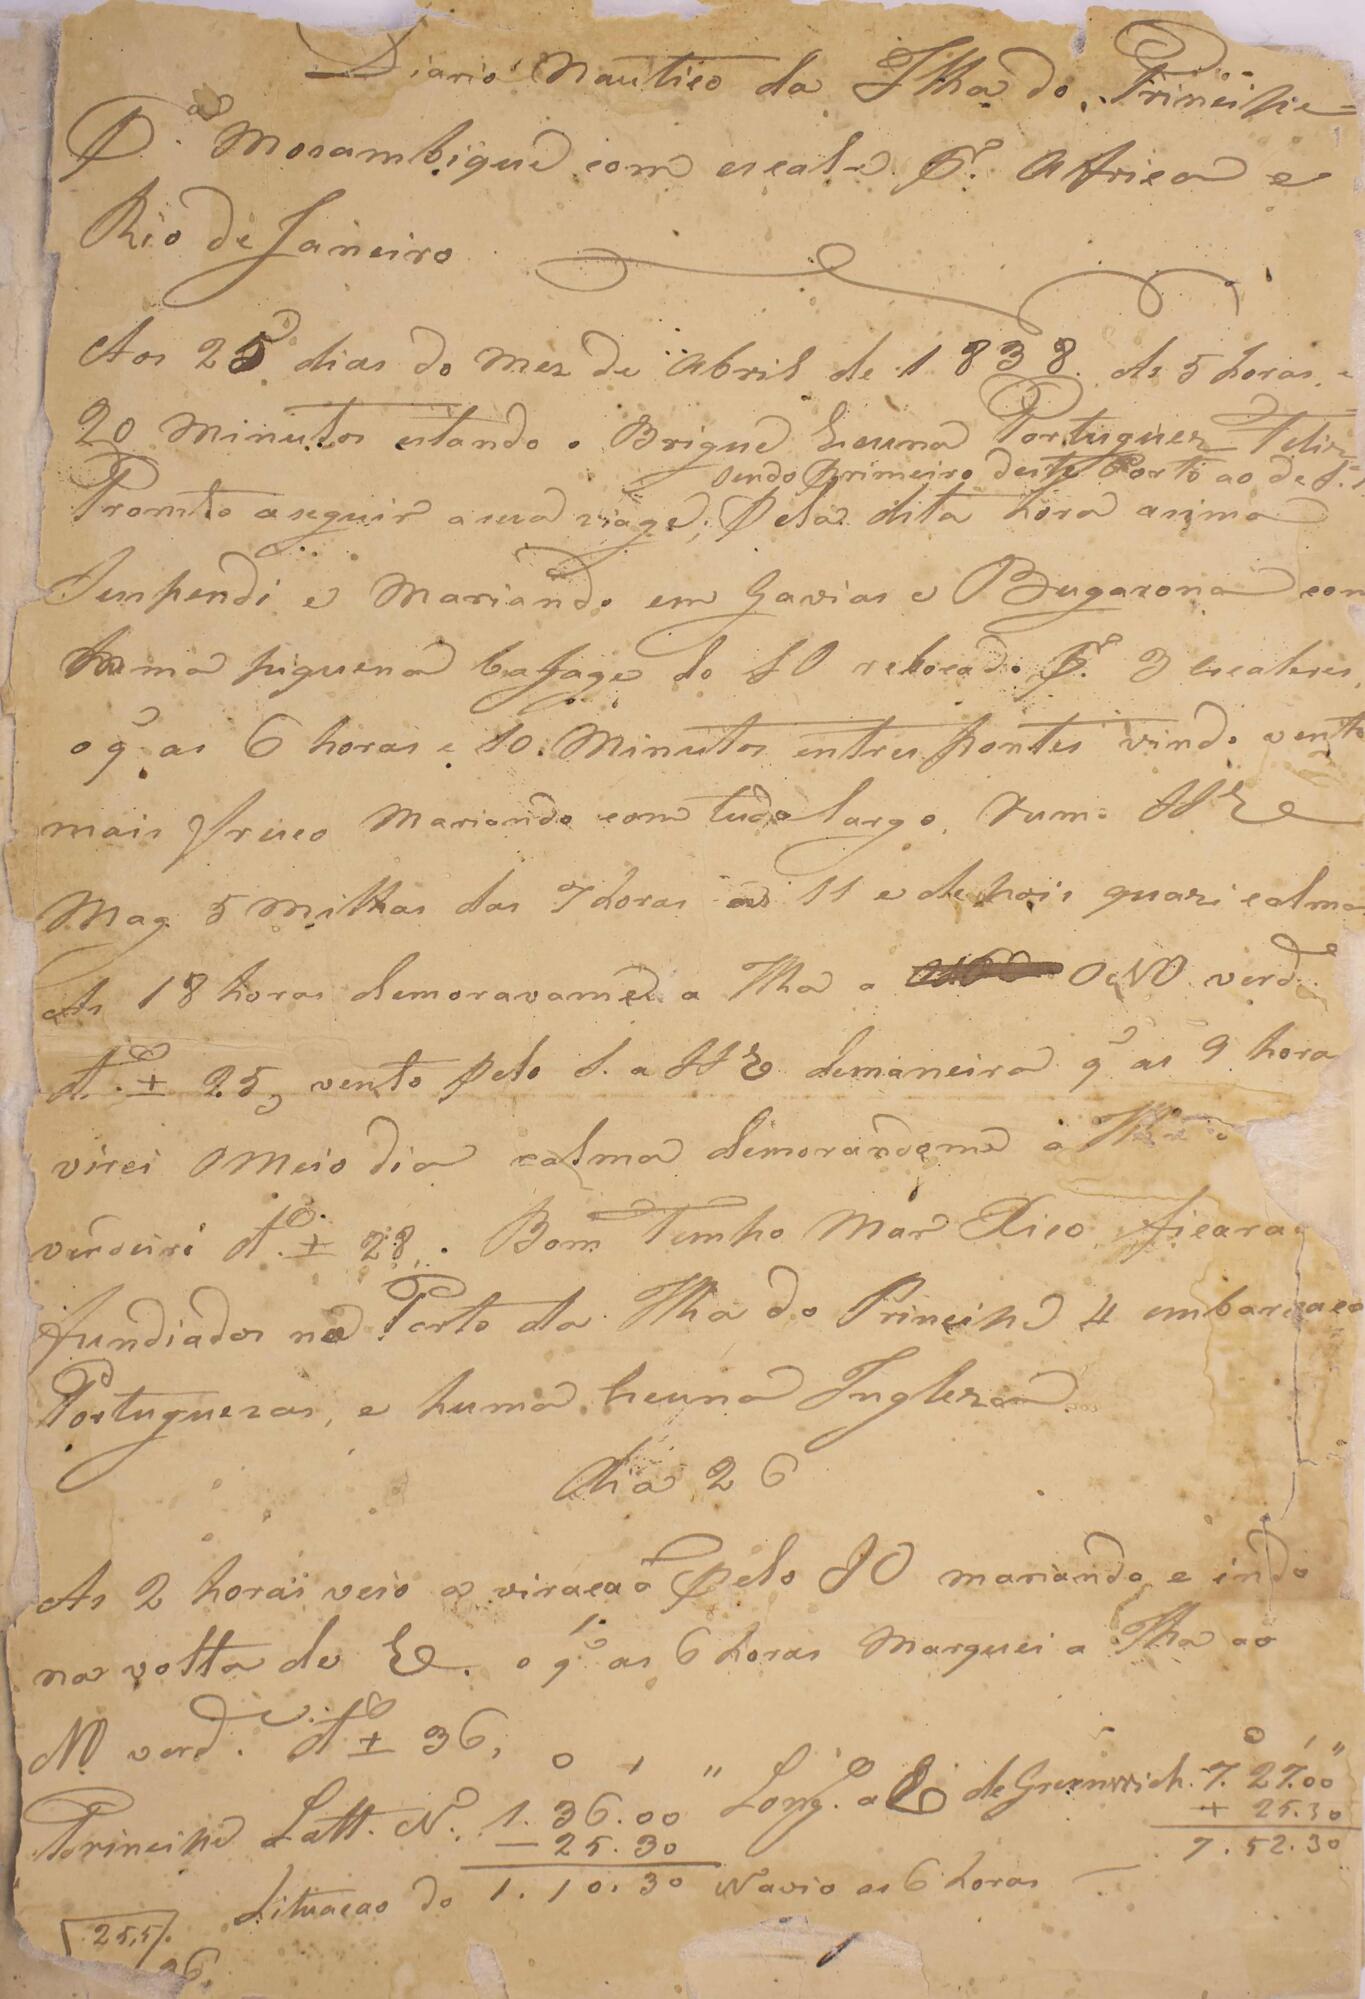 Diario Nautico da Ilha do Principe=
P.ª Mosambique com escala P.r Africa e
Rio de Janeiro
Aos 25 dias do Mez de Abril de 1838. As 5 horas e
20 Minutos estando o Brigue Escuna Portuguez Feliz
sendo Primeiro deste Porto ao de S.
Promto a seguir a sua viage, Pela dita hora asima
Suspendi e Mariando em Gavias e Bugarrona com
huma piquena bafage do SO rebocado P.r 3 escaleres,
o q as 6 horas e 10 Minutos entrespontes vindo vento
mais fresco Mariando com tudo largo, Rumo SSE
Mag. 5 Milhas das 7 horas as 11 e depois quazi calma
As 18 horas demoravame a Ilha a ONO verd.e
d.a ± 25, vento pelo S. a SSE demaneira q as 9 hora
virei O Meio dia calma demorandome a Ilha
d.a ± 28,. Bom Tempo Mar Xico, ficara
fundiados no Porto da Ilha do Principe 4 embarcaco
Portuguezas, e huma Escuna Ingleza
Dia 26
As 2 horas veio a viracaõ Pelo SO mariando e indo
na volta de E. o q as 6 horas Marquei a Ilha ao
NO verd.e d.a ± 36,
Principe Latt. N. 1.° 36.' 00" Long. a E de Greenwich. 7.° 27.' 00"
— 25.30 + 25.30
Situacao do 1.10.30 Navio as 6 horas — 7.52.30
25,5
36,